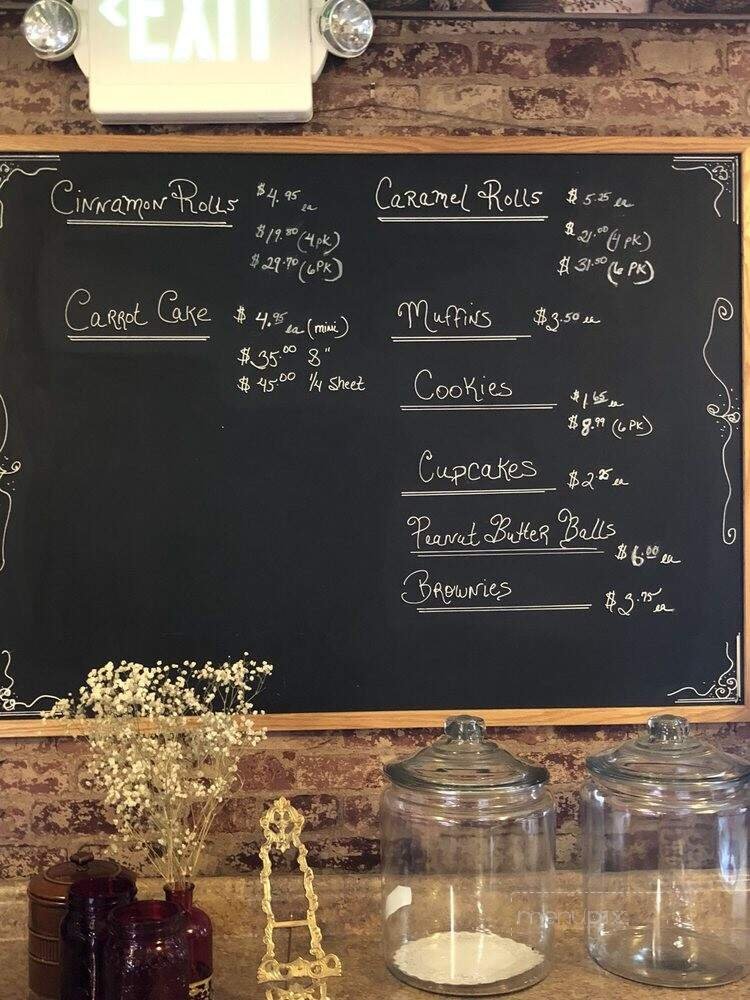 EXIT
Cinnamon Rolls $4.95 ea
$19.80 (4pk)
$29.70 (6pk)
Caramel Rolls $5.25 ea
$21.00 (4 pk)
$31.50 (6 pk)
Carrot Cake $4.95 ea (mini)
$35.00 8"
$45.00 1/4 Sheet
Muffins $3.50 ea
Cookies $1.65 ea
$8.99 (6 pk)
Cupcakes $2.25 ea
Peanut Butter Balls
$6.00 ea
Brownies $3.75 ea
menupix